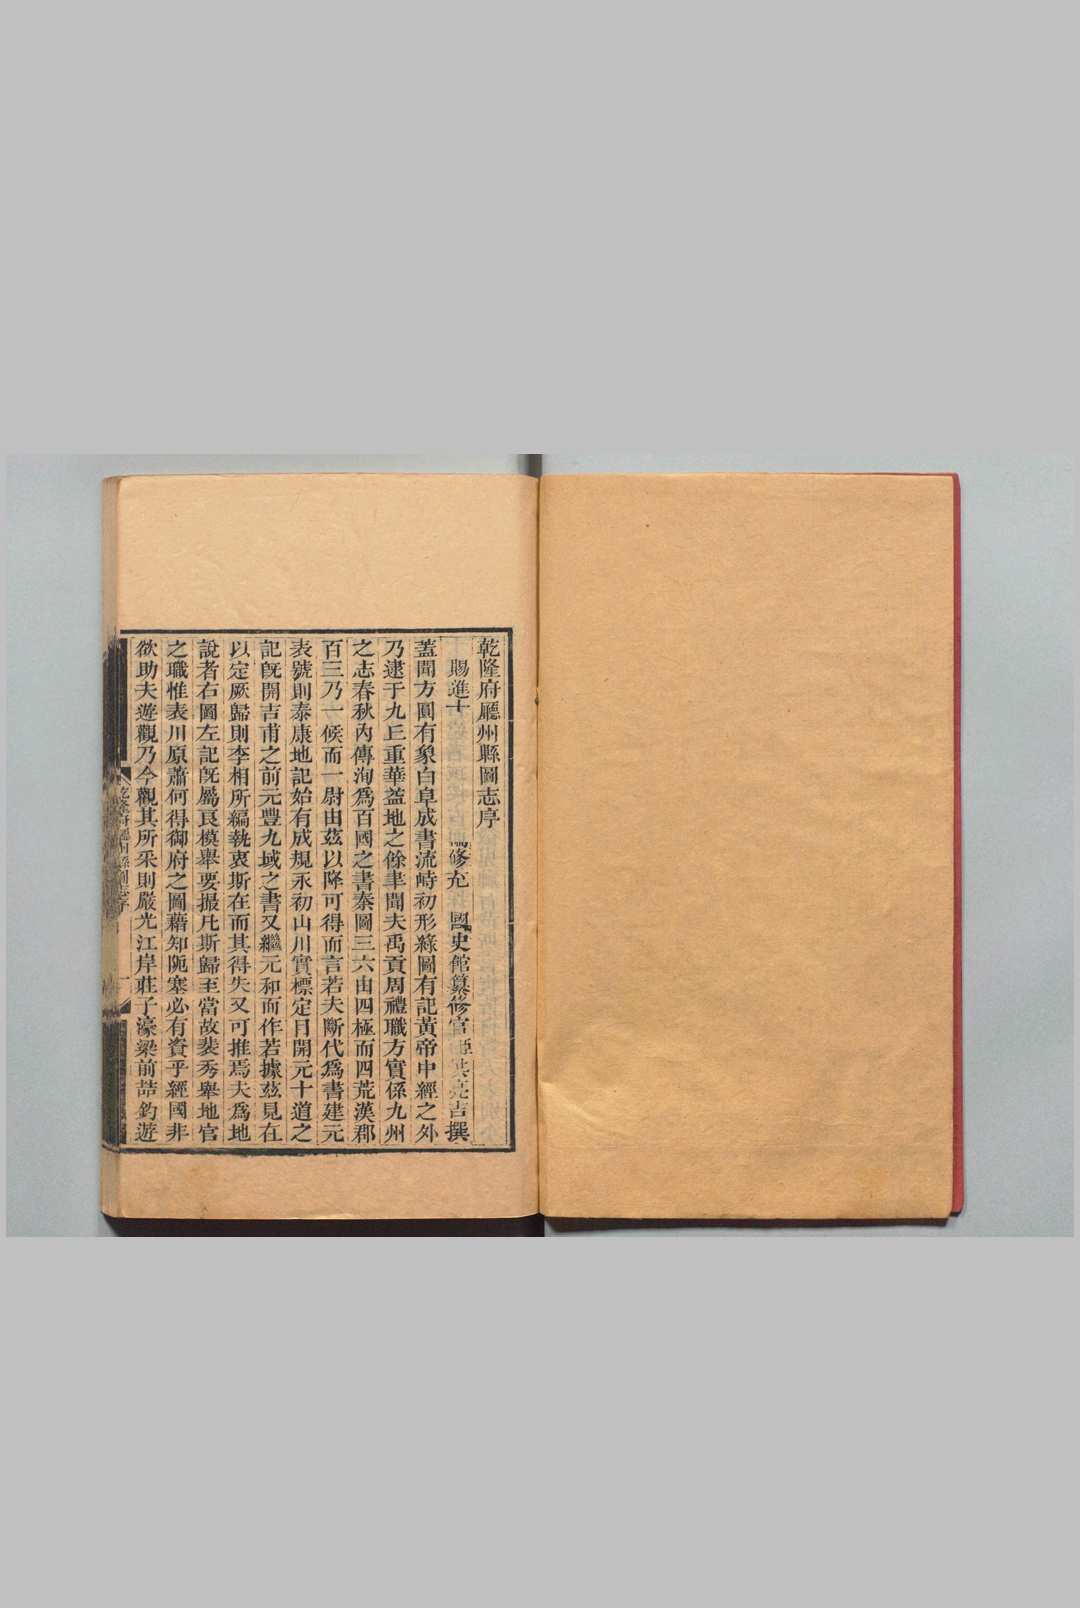 乾隆府廳州縣圖志序
賜進士 編修充 國史館纂修官 洪亮吉撰
蓋聞方圓有象白阜成書流峙初形綠圖有記黃帝中經之外
乃逮于九丘重華益地之餘聿聞夫禹貢周禮職方實係九州
之志春秋內傳洵爲百國之書秦圖三六由四極而四荒漢郡
百三乃一候而一尉由茲以降可得而言若夫斷代爲書建元
表號則泰康地記始有成規永初山川實標定目開元十道之
記旣開吉甫之前元豐九域之書又繼元和而作若據茲見在
以定厥歸則李相所編執衷斯在而其得失又可推焉夫爲地
說者右圖左記旣屬良模舉要撮凡斯歸至當故裴秀舉地官
之職惟表川原蕭何得御府之圖藉知阨塞必有資乎經國非
欲助夫遊觀乃今觀其所采則嚴光江岸莊子濠梁前喆釣遊